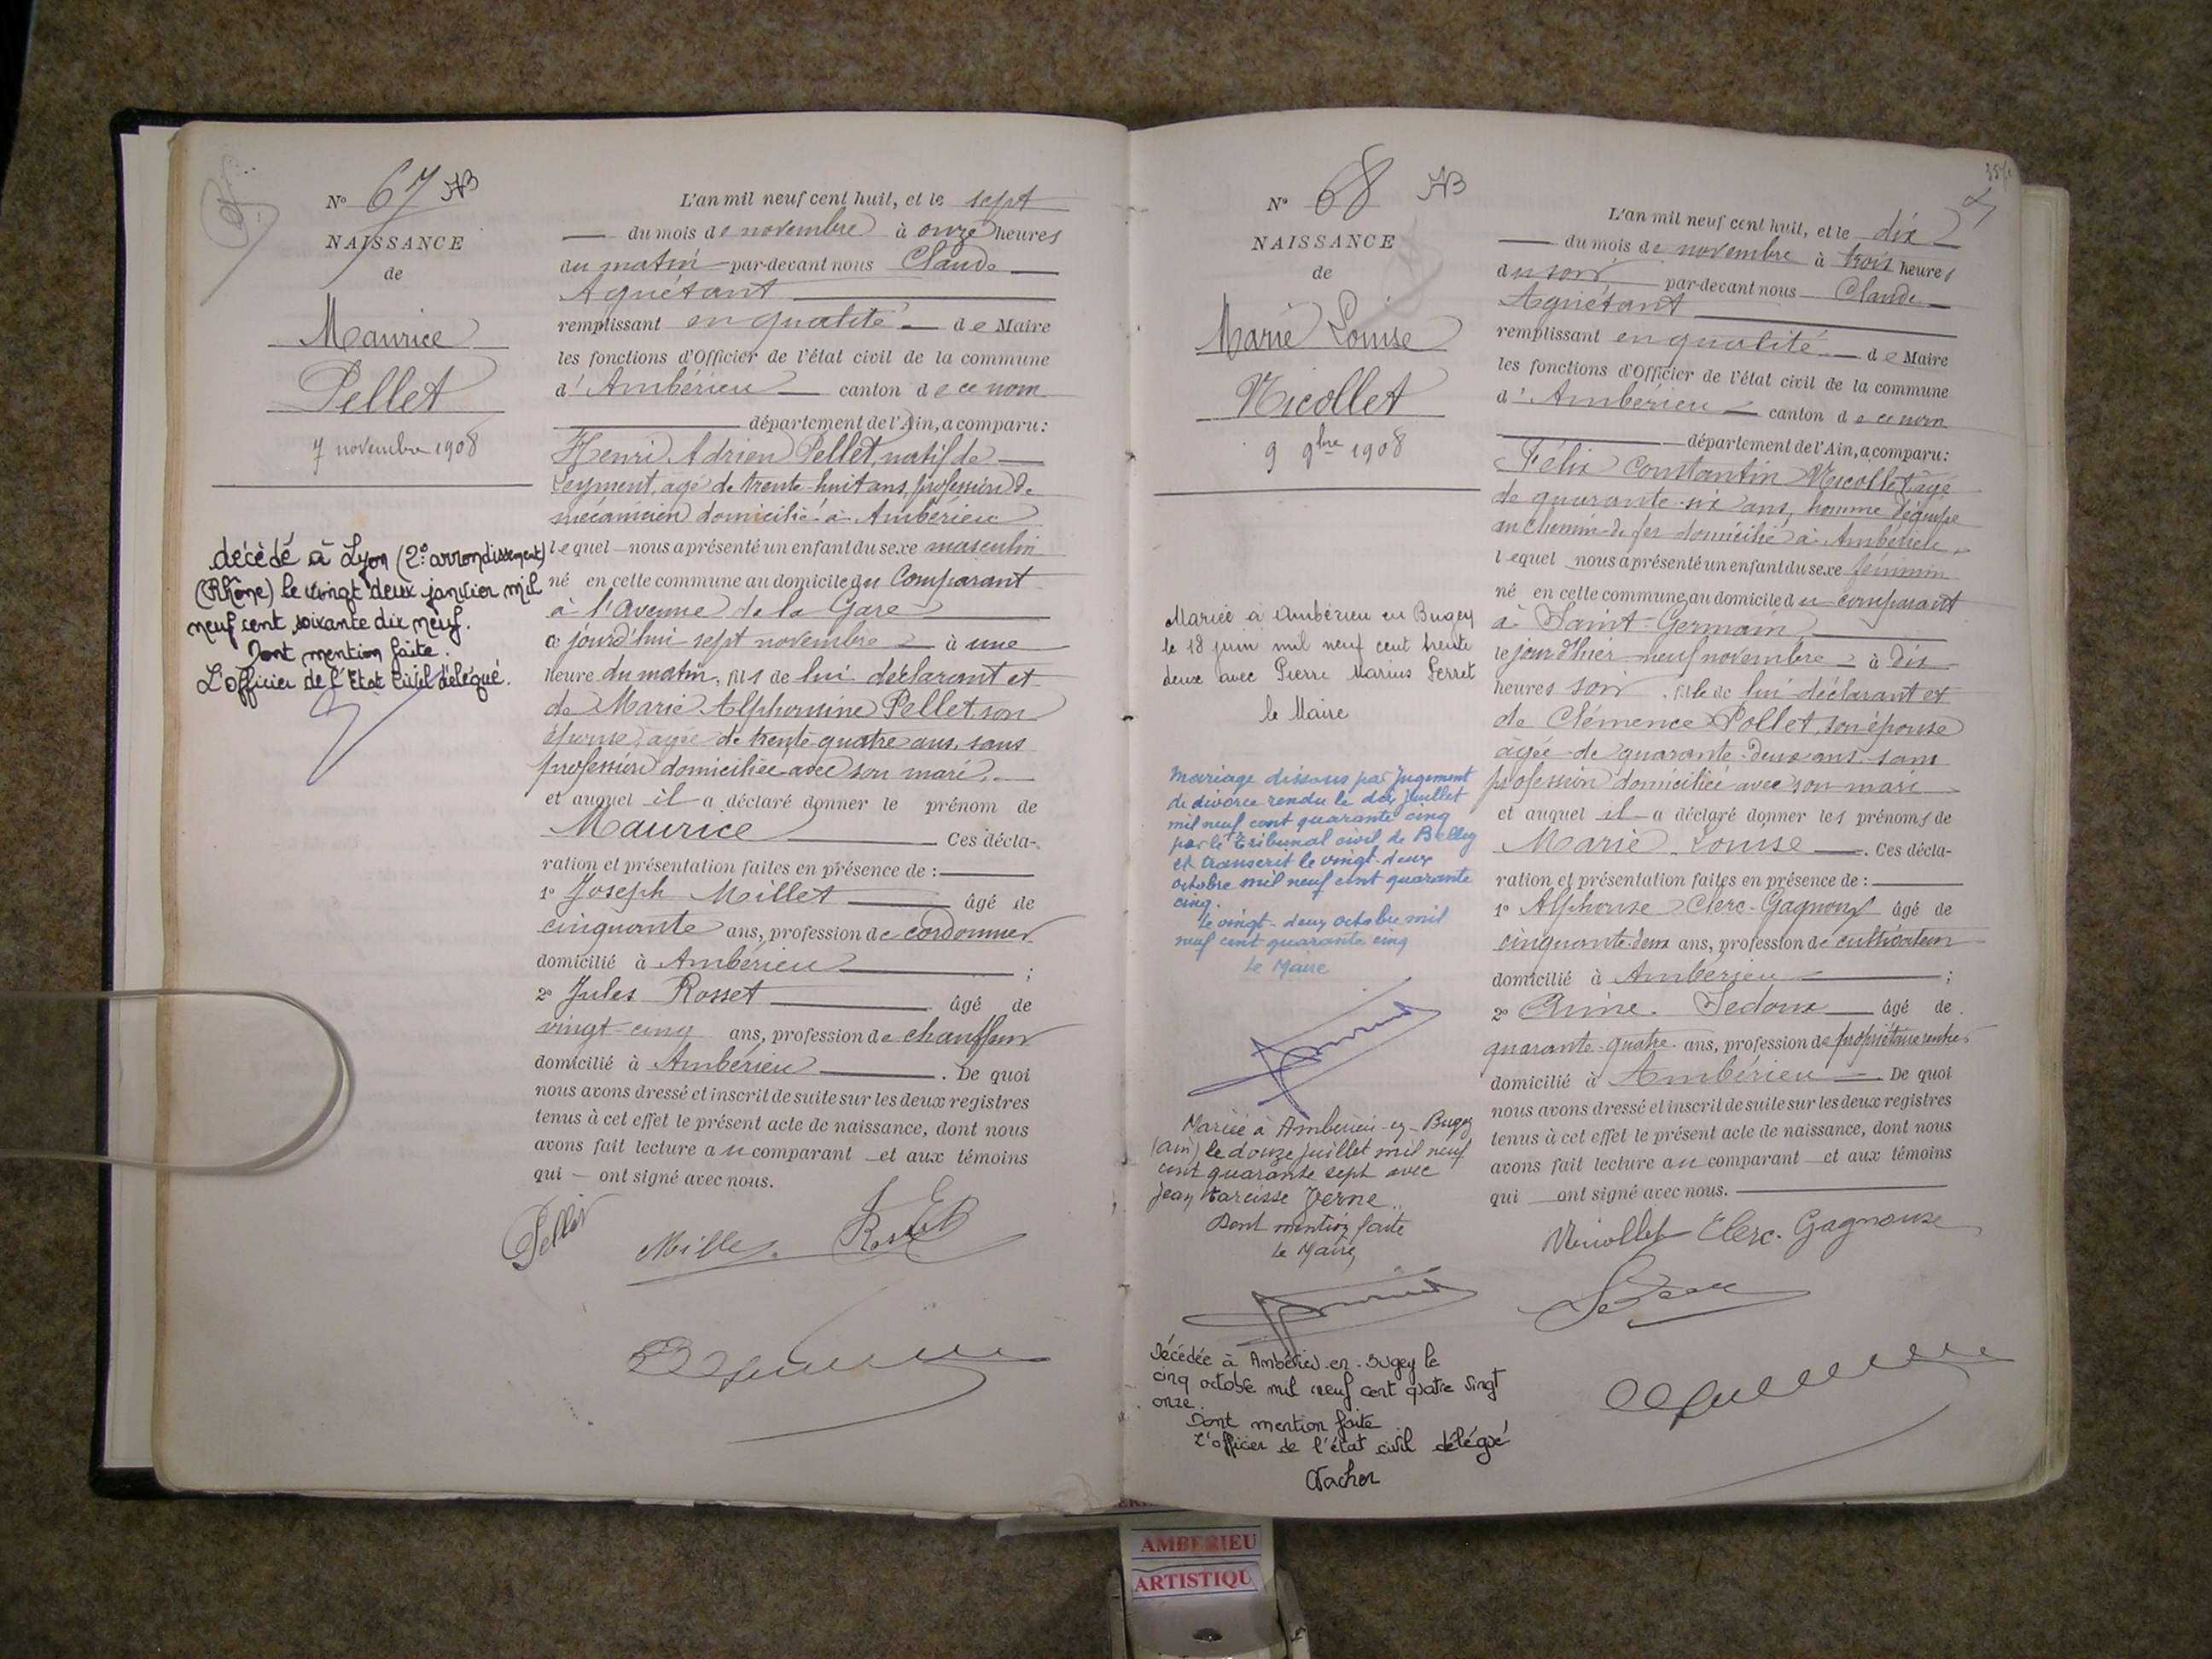 N° 67 AB
NAISSANCE
de
Maurice
Pellet
7 novembre 1908
décédé à Lyon (2e arrondissement)
(Rhône) le vingt deux janvier mil
neuf cent soixante dix neuf.
Dont mention faite.
L'officier de l'Etat Civil délégué.
L'an mil neuf cent huit, et le sept
du mois de novembre à onze heures
du matin par-devant nous Claude
Aguétant
remplissant en qualité de Maire
les fonctions d'Officier de l'état civil de la commune
d'Ambérieu canton de ce nom
département de l'Ain, a comparu :
Henri Adrien Pellet, natif de
Leyment, agé de trente-huit ans, profession de
mécanicien domicilié à Ambérieu
lequel nous a présenté un enfant du sexe masculin
né en cette commune au domicile du Comparant
à l'avenue de la Gare
ce jourd'hui sept novembre à une
heure du matin, fils de lui déclarant et
de Marie Alphonsine Pellet, son
épouse, agée de trente quatre ans, sans
profession domiciliée avec son mari.
et auquel il a déclaré donner le prénom de
Maurice Ces décla-
ration et présentation faites en présence de :
1° Joseph Millet âgé de
cinquante ans, profession de cordonnier
domicilié à Ambérieu ;
2° Jules Rosset âgé de
vingt-cinq ans, profession de chauffeur
domicilié à Ambérieu . De quoi
nous avons dressé et inscrit de suite sur les deux registres
tenus à cet effet le présent acte de naissance, dont nous
avons fait lecture au comparant et aux témoins
qui ont signé avec nous.
Pellet Millet Rosset
N° 68 AB
NAISSANCE
de
Marie Louise
Nicollet
9 9bre 1908
Mariée à Ambérieu en Bugey
le 18 juin mil neuf cent trente
deux avec Pierre Marius Perret
le Maire
Mariage dissous par jugement
de divorce rendu le dix juillet
mil neuf cent quarante cinq
par le Tribunal civil de Belley
et transcrit le vingt-deux
octobre mil neuf cent quarante
cinq.
Le vingt-deux octobre mil
neuf cent quarante cinq
Le Maire
Mariée à Ambérieu-en-Bugey
(Ain) le douze juillet mil neuf
cent quarante sept avec
Jean Narcisse Verne.
Dont mention faite
Le Maire,
Décédée à Ambérieu-en-Bugey le
cinq octobre mil neuf cent quatre vingt
onze.
Dont mention faite
L'officier de l'état civil délégué
L'an mil neuf cent huit, et le dix
du mois de novembre à trois heures
du soir par-devant nous Claude
Aguétant
remplissant en qualité de Maire
les fonctions d'Officier de l'état civil de la commune
d'Ambérieu canton de ce nom
département de l'Ain, a comparu :
Félix Constantin Nicollet, âgé
de quarante-six ans, homme d'équipe
au chemin de fer domicilié à Ambérieu
lequel nous a présenté un enfant du sexe féminin
né en cette commune au domicile du comparant
à Saint-Germain
le jour d'hier neuf novembre à dix
heures soir, fille de lui déclarant et
de Clémence Pollet, son épouse
âgée de quarante-deux ans, sans
profession domiciliée avec son mari
et auquel il a déclaré donner les prénoms de
Marie Louise . Ces décla-
ration et présentation faites en présence de :
1° Alphonse Clerc-Gagnoux âgé de
cinquante-deux ans, profession de cultivateur
domicilié à Ambérieu ;
2° âgé de
quarante-quatre ans, profession de propriétaire rentier
domicilié à Ambérieu . De quoi
nous avons dressé et inscrit de suite sur les deux registres
tenus à cet effet le présent acte de naissance, dont nous
avons fait lecture au comparant et aux témoins
qui ont signé avec nous.
Nicollet Clerc-Gagnoux
AMBERIEU
ARTISTIQU